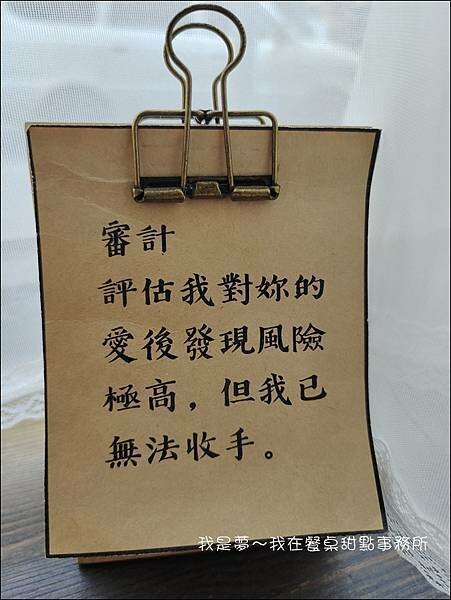 審計
評估我對妳的
愛後發現風險
極高，但我已
無法收手。
我是夢～我在餐桌甜點事務所